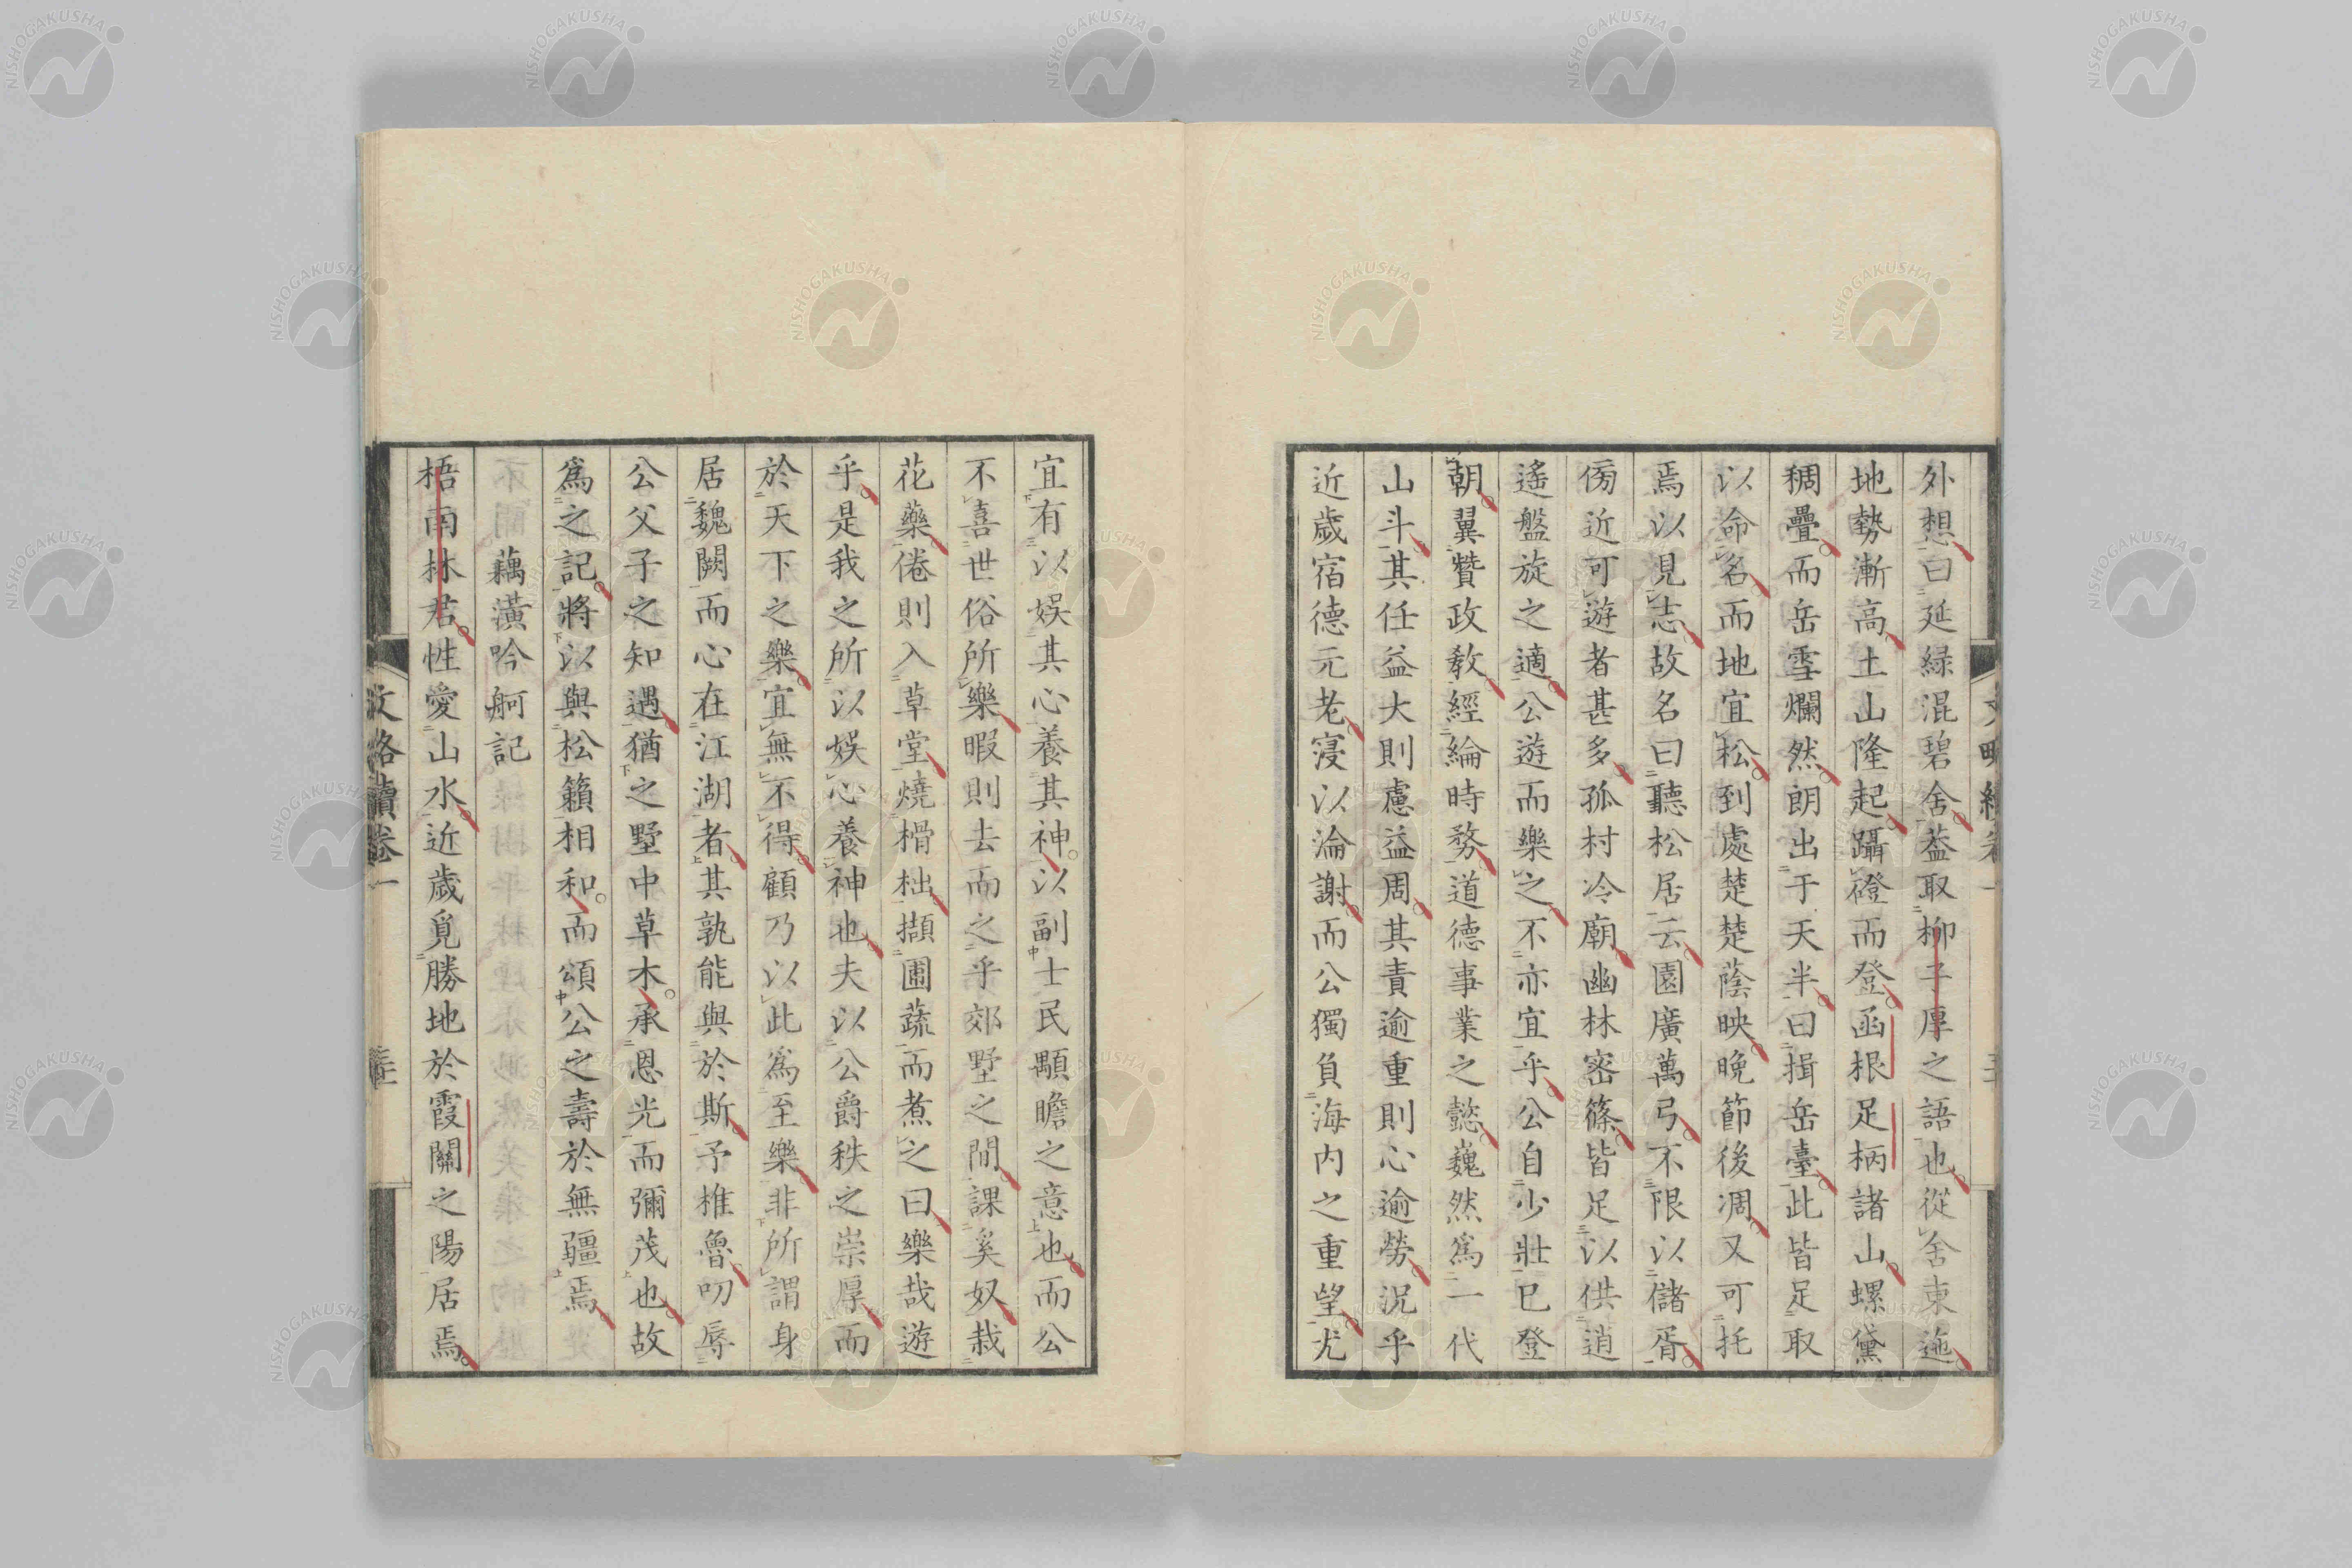 外想曰延緑混碧舍葢取柳子厚之語也從舍東迤
地勢漸高土山隆起躡磴而登函根足柄諸山螺黛
稠疊而岳雪爛然朗出于天半曰揖岳臺此皆足取
以命名而地宜松到處楚楚蔭映晚節後凋又可托
焉以見志故名曰聽松居云園廣萬弓不限以儲胥
傍近可遊者甚多孤村冷廟幽林密篠皆足以供逍
遙盤旋之適公遊而樂之不亦宜乎公自少壯已登
朝翼贊政教經綸時務道德事業之懿巍然為一代
山斗其任益大則慮益周其責逾重則心逾勞況乎
近歲宿德元老寖以淪謝而公獨負海内之重望尤
宜有以娛其心養其神以副士民顒瞻之意也而公
不喜世俗所樂暇則去而之乎郊墅之間課奚奴栽
花藥倦則入草堂燒榾柮擷圃蔬而煮之曰樂哉遊
乎是我之所以娛心養神也夫以公爵秩之崇厚而
於天下之樂宜無不得顧乃以此為至樂非所謂身
居魏闕而心在江湖者其孰能與於斯予椎魯叨辱
公父子之知遇猶之墅中草木承恩光而彌茂也故
爲之記將以與松籟相和而頌公之壽於無疆焉
藕潢吟舸記
梧南林君性愛山水近歲覓勝地於霞關之陽居焉